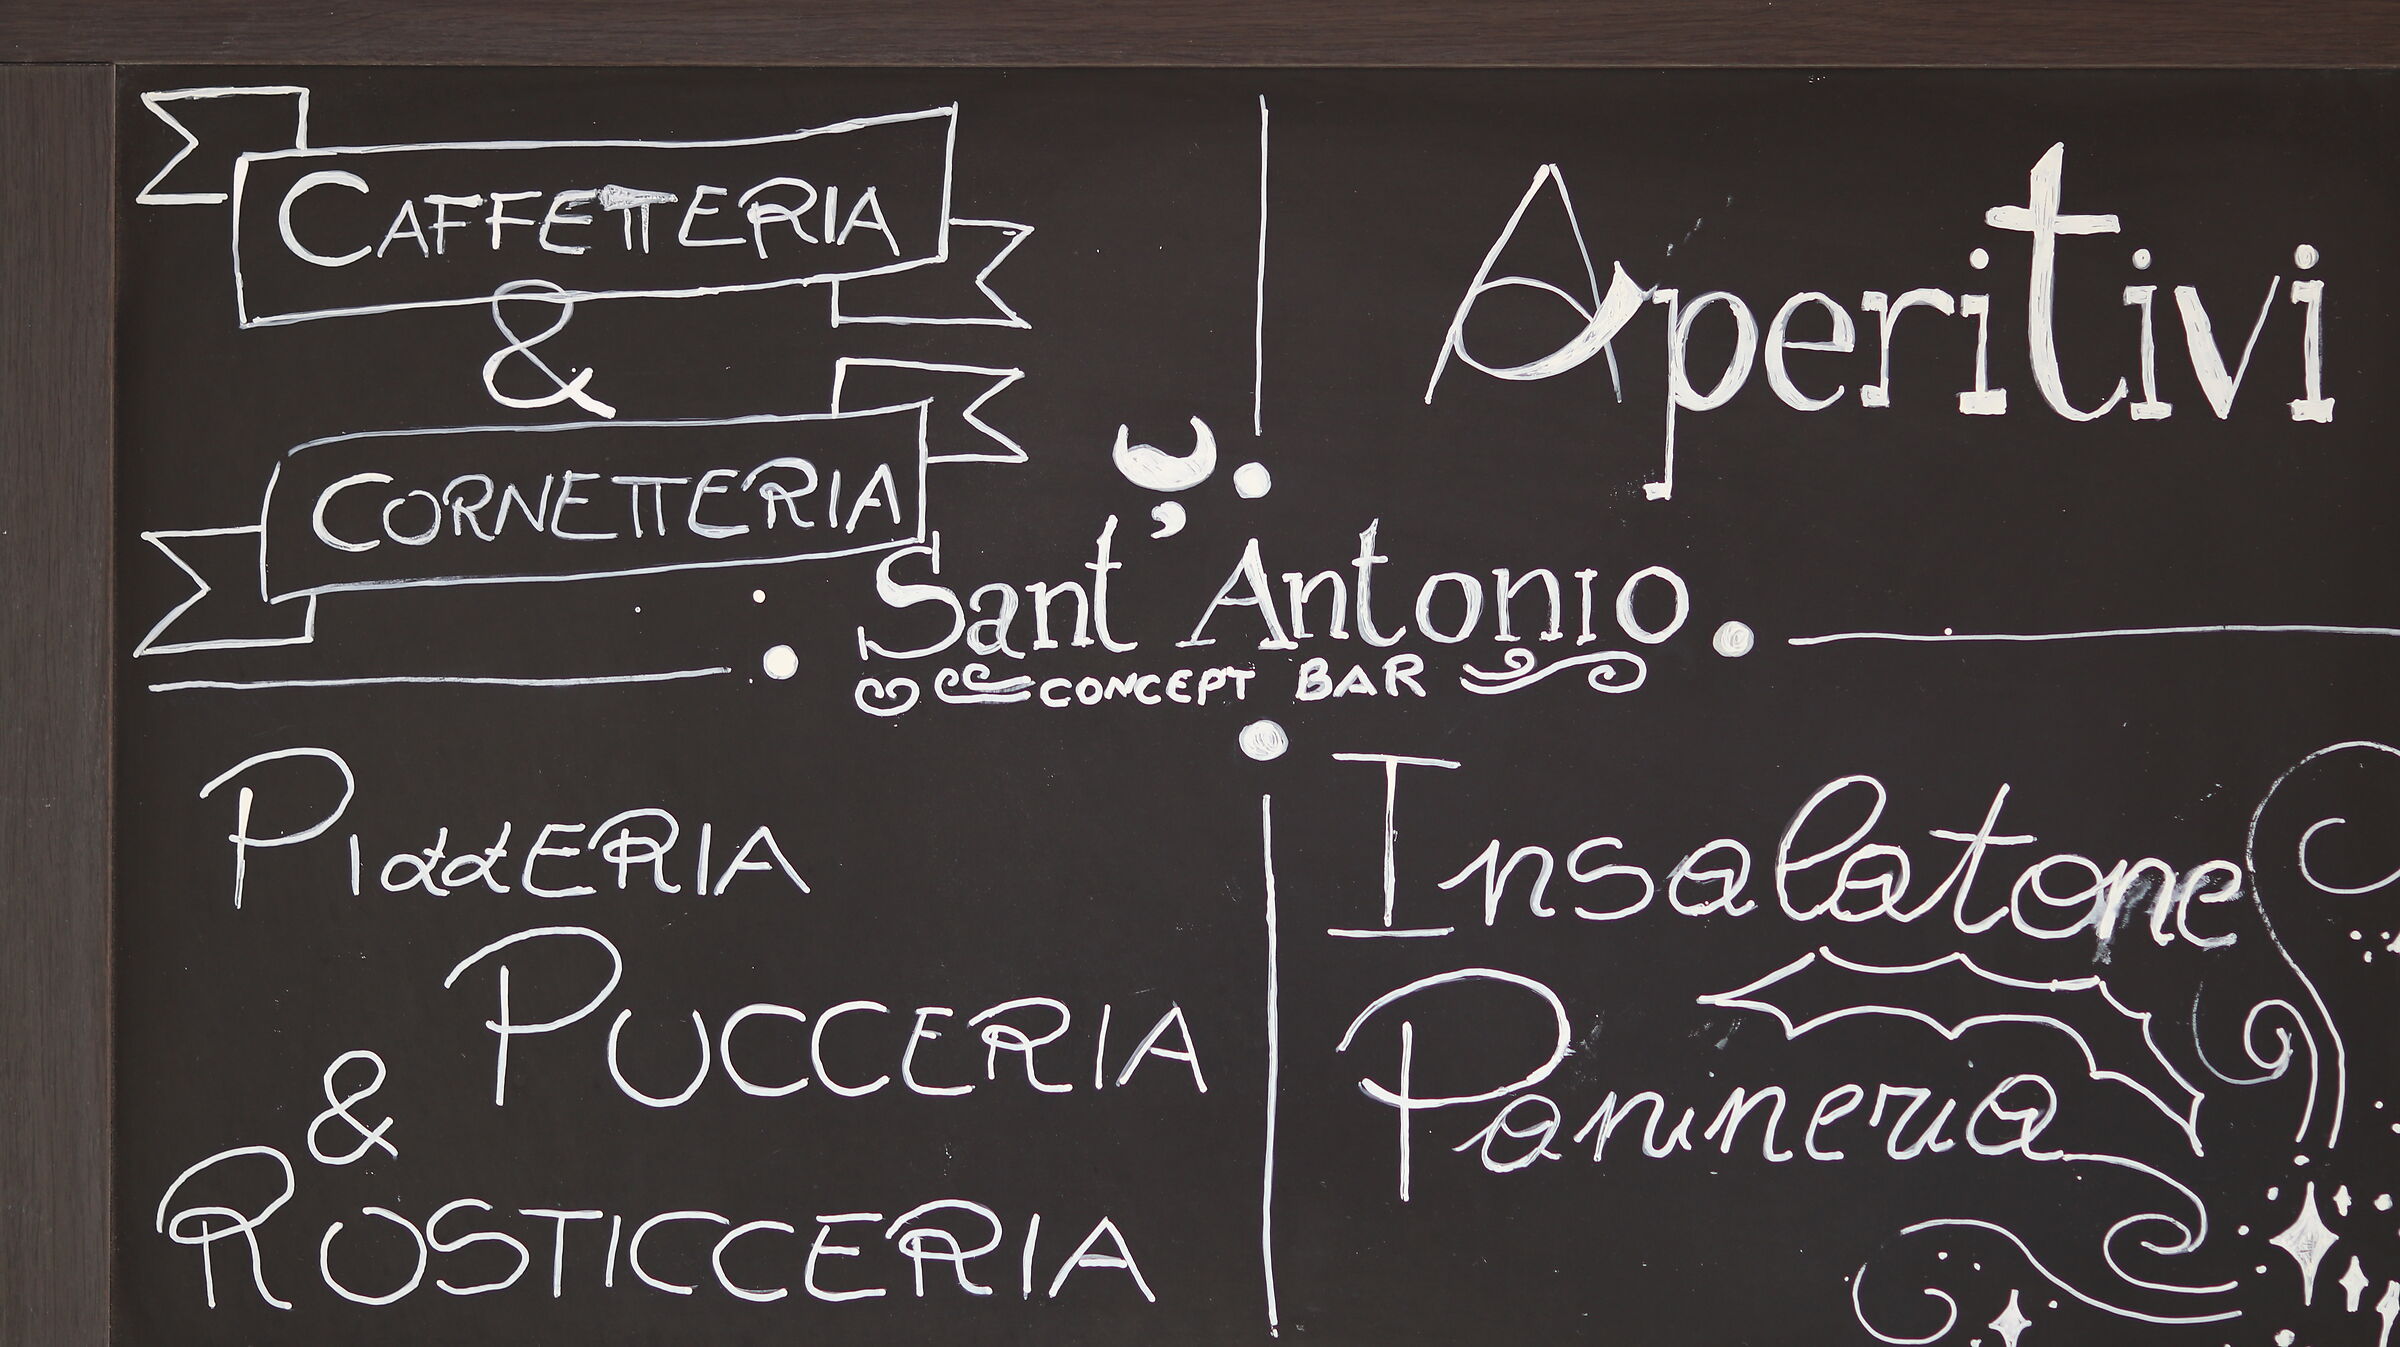 CAFFETTERIA
&
CORNETTERIA
Aperitivi
Sant'Antonio
CONCEPT BAR
PIZZERIA
PUCCERIA
&
ROSTICCERIA
Insalatone
Panineria